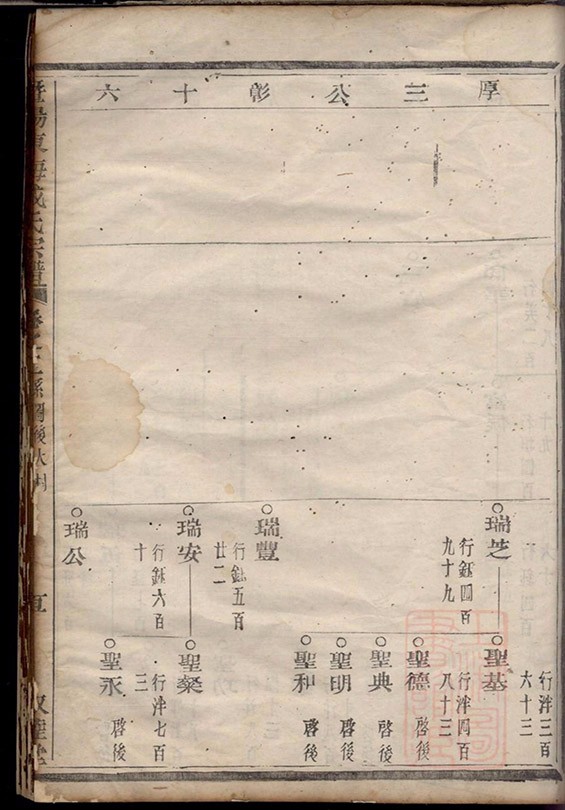 厚三公彰十六
瑞芝
行鈺四百
九十九
瑞豐
行鈺五百
廿二
瑞安
行鈺六百
十
瑞公
行泮三百
六十三
聖基
行泮四百
八十三
聖德
啓後
聖典
啓後
聖明
啓後
聖和
啓後
聖燊
行泮七百
三
聖永
啓後
氏宗譜